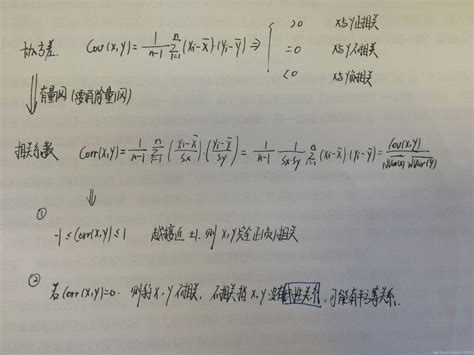 协方差. Cov(x,y) = 1/(n-1) Σ(i=1..n) (xi-x̄)·(yi-ȳ) ⇒ { >0 x与y正相关
=0 x与y不相关
<0 x与y负相关
有量纲(需消除量纲)
相关系数 Corr(x,y) = 1/(n-1) Σ(i=1..n) ((xi-x̄)/Sx)·((yi-ȳ)/Sy) = 1/(n-1) 1/(Sx·Sy) Σ(i=1..n) (xi-x̄)·(yi-ȳ) = Cov(x,y)/(√Var(x) √Var(y))
①
-1 ≤ Corr(x,y) ≤ 1 越接近 ±1. 则 x,y完全正(负)相关
② 若Corr(x,y)=0. 则称 x,y不相关, 不相关指 x,y没有线性关系, 可能有平方等关系.